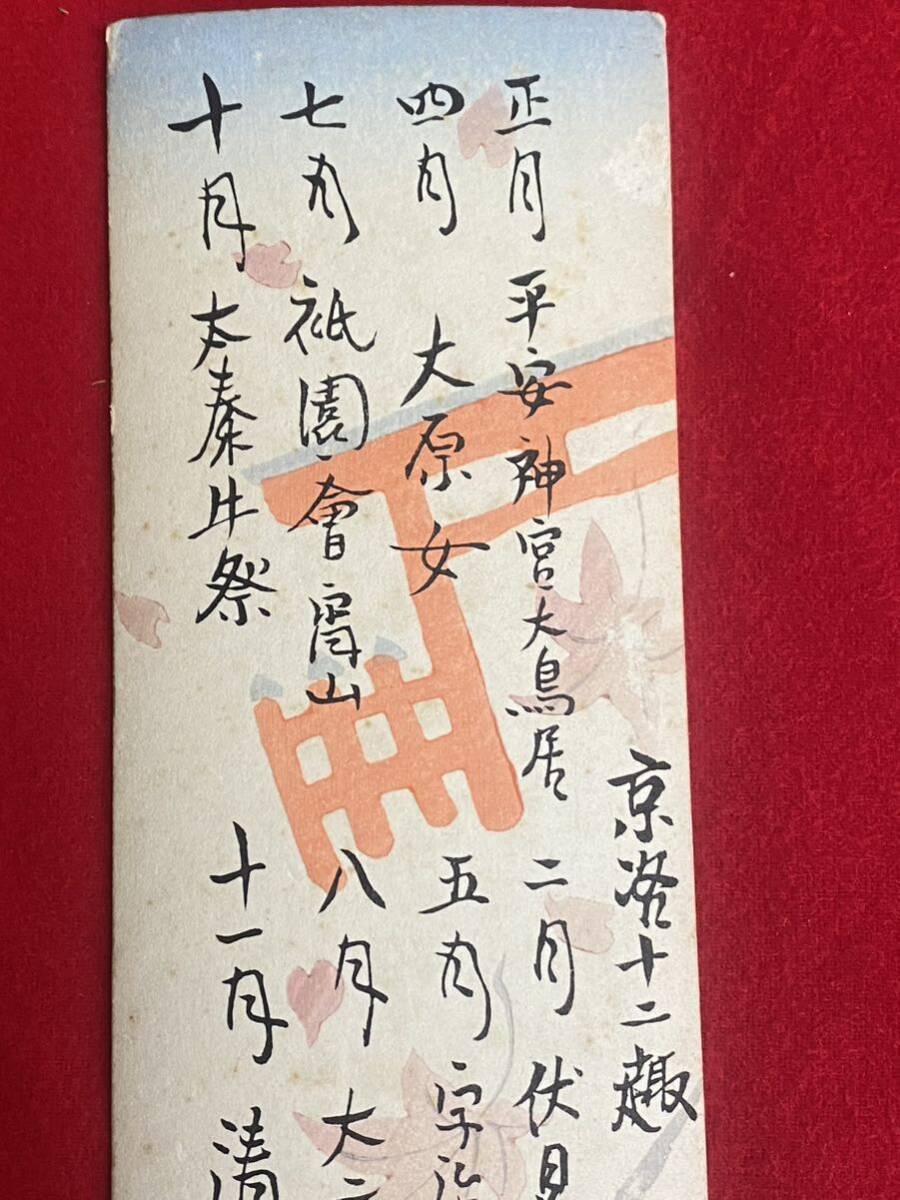 京洛十二趣
正月 平安神宮大鳥居
二月 伏見
四月 大原女
五月 宇治
七月 祇園會宵山
八月 大
十月 太秦牛祭
十一月 清